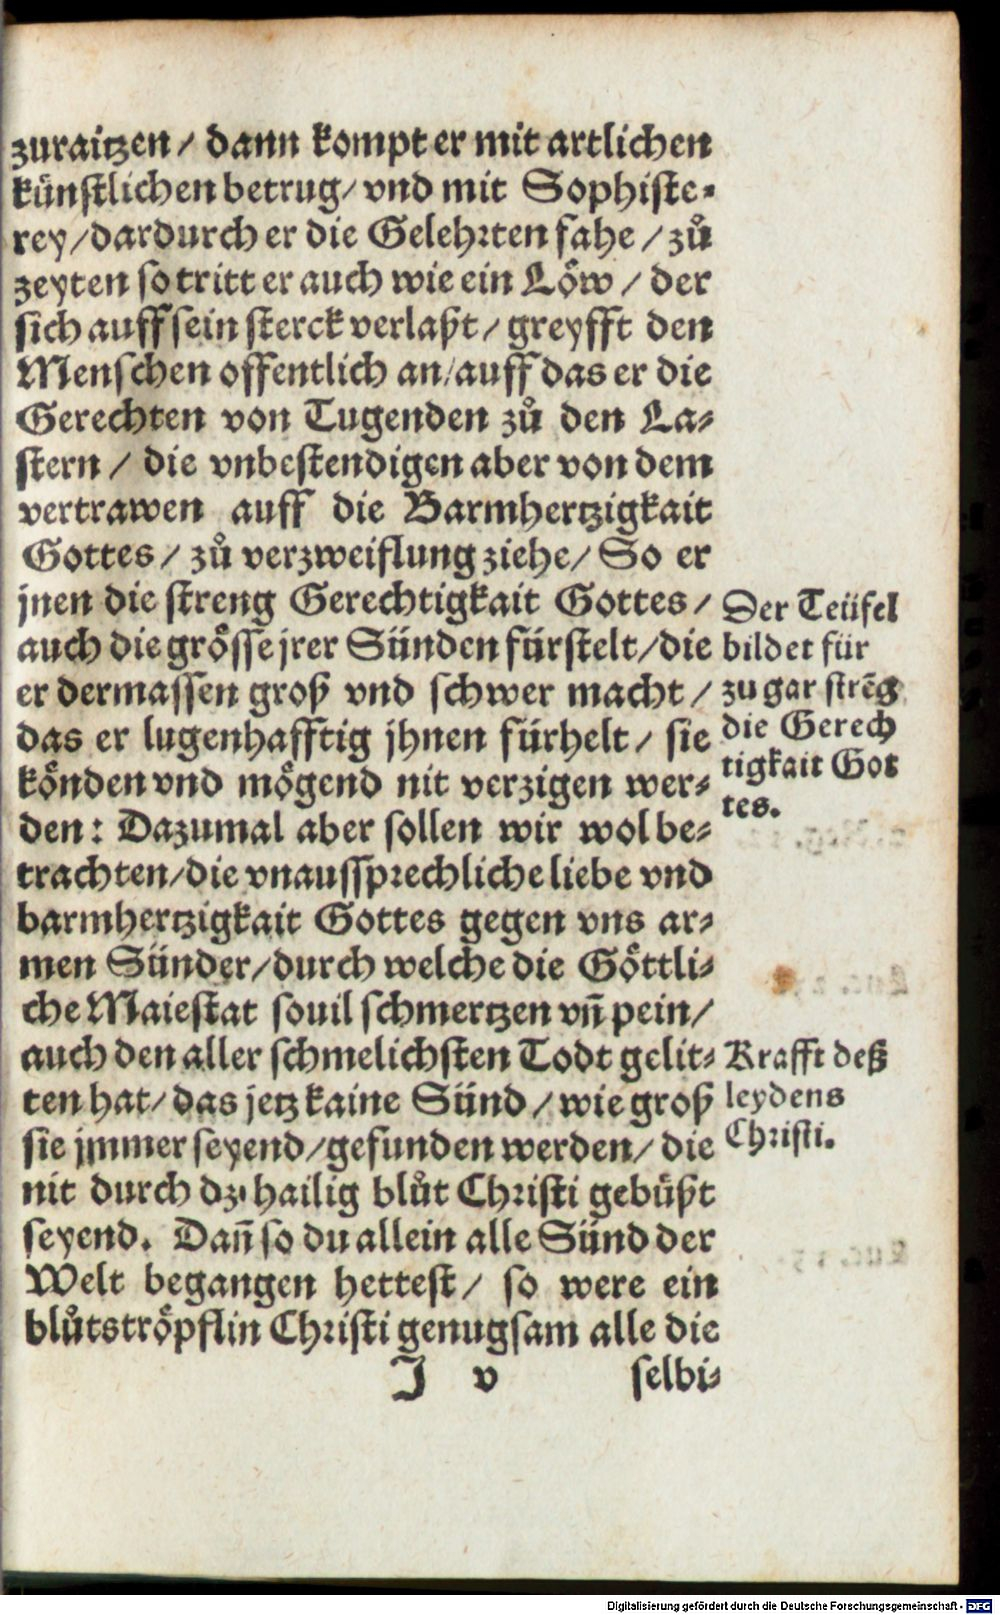 zuraitzen / dann kompt er mit artlichen
künstlichen betrug / vnd mit Sophiste-
rey / dardurch er die Gelehrten fahe / zů
zeyten so tritt er auch wie ein Löw / der
sich auff sein sterck verlaßt / greyfft den
Menschen offentlich an / auff das er die
Gerechten von Tugenden zů den La-
stern / die vnbestendigen aber von dem
vertrawen auff die Barmhertzigkait
Gottes / zů verzweiflung ziehe / So er
jnen die streng Gerechtigkait Gottes /
auch die grösse jrer Sünden fürstelt / die
er dermassen groß vnd schwer macht /
das er lugenhafftig jhnen fürhelt / sie
könden vnd mögend nit verzigen wer-
den : Dazumal aber sollen wir wol be-
trachten / die vnaussprechliche liebe vnd
barmhertzigkait Gottes gegen vns ar-
men Sünder / durch welche die Göttli-
che Maiestat souil schmertzen vñ pein /
auch den aller schmelichsten Todt gelit-
ten hat / das jetz kaine Sünd / wie groß
sie jmmer seyend / gefunden werden / die
nit durch dz hailig blůt Christi gebüßt
seyend. Dañ so du allein alle Sünd der
Welt begangen hettest / so were ein
blůtströpflin Christi genugsam alle die
J v selbi-
Der Teüfel
bildet für
zu gar strēg
die Gerech
tigkait Got
tes.
Krafft deß
leydens
Christi.
Digitalisierung gefördert durch die Deutsche Forschungsgemeinschaft - DFG